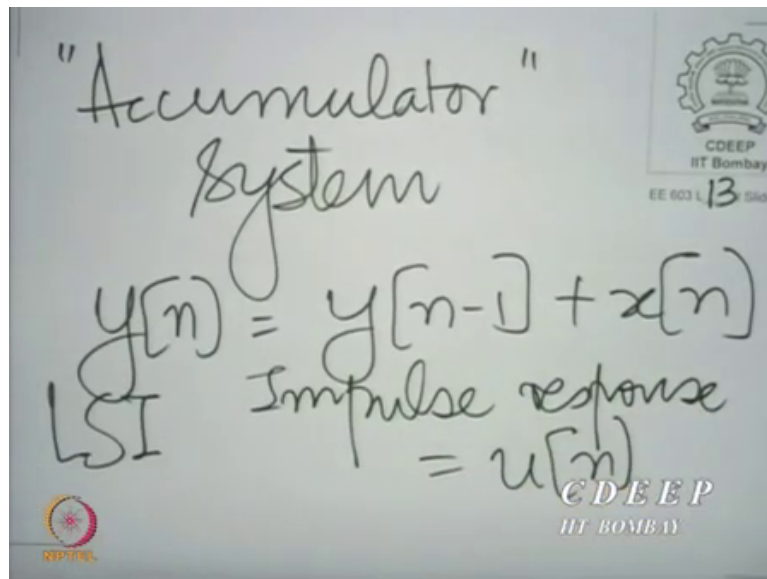 "Accumulator"
System
CDEEP
IIT Bombay
EE 603 L 13 Slid
y[n] = y[n-1] + x[n]
LSI Impulse response
= u[n]
CDEEP
IIT BOMBAY
NPTEL